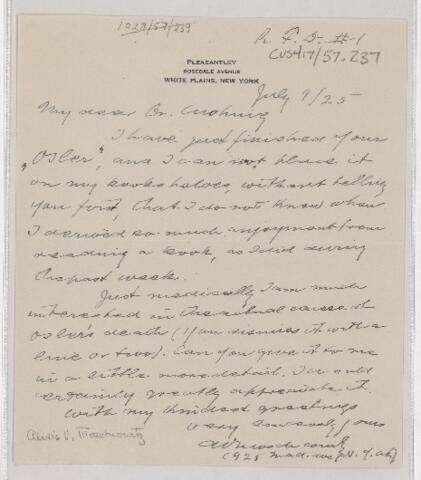 1028/57/239
R. F. D. #1
CUS417/57.237
PLEASANTLEY
ROSEDALE AVENUE
WHITE PLAINS, NEW YORK
July 9/25
My dear Dr. Cushing
I have just finished your
"Osler", and I can not place it
on my bookshelves, without telling
you first, that I do not know when
I derived so much enjoyment from
reading a book, as I did during
the past week.
Just medically I am much
interested in the actual cause of
Osler's death (you dismiss it with a
line or two). Can you give it to me
in a little more detail. I would
certainly greatly appreciate it.
With my kindest greetings
very sincerely yours
(925 Mad. ave N. Y. City)
Alexis V. Moschcowitz